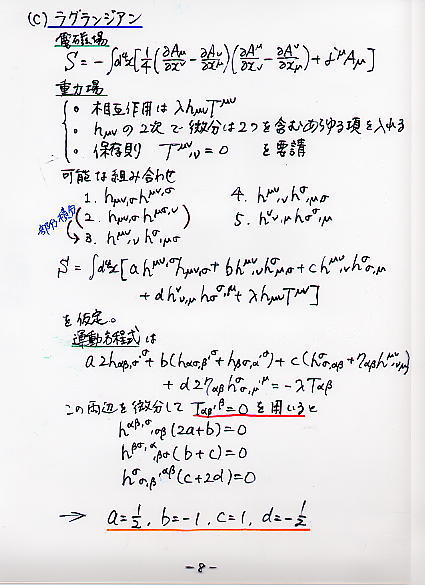 (C) ラグランジアン
電磁場
S = -∫d⁴x[1/4(∂Aμ/∂xν - ∂Aν/∂xμ)(∂A^μ/∂xν - ∂A^ν/∂xμ) + j^μ Aμ]
重力場
・ 相互作用は λhμνT^μν
・ hμν の2次で微分は2つを含むあらゆる項を入れる
・ 保存則 T^μν,ν = 0 を要請
可能な組み合わせ
1. hμν,σ h^μν,σ 4. h^μν,ν h^σσ,μ
部分積分 (2. hμν,σ h^μσ,ν) 5. h^νν,μ h^σσ,^μ
3. h^μν,ν h^σμ,σ
S = ∫d⁴x[a h^μν,σ hμν,σ + b h^μν,ν h^σμ,σ + c h^μν,ν h^σσ,μ
+ d h^νν,μ h^σσ,^μ + λ hμν T^μν]
を仮定。
運動方程式は
a2hαβ,σ^,σ + b(hασ,β^,σ + hβσ,α^,σ) + c(h^σσ,αβ + ηαβ h^μν,νμ)
+ d2ηαβ h^σσ,μ^,μ = -λTαβ
この両辺を微分して Tαβ^,β = 0 を用いると
h^αβ,σ,σβ (2a+b) = 0
h^βσ,α,βσ (b+c) = 0
h^σσ,β^,αβ (c+2d) = 0
→ a = 1/2, b = -1, c = 1, d = -1/2
-8-